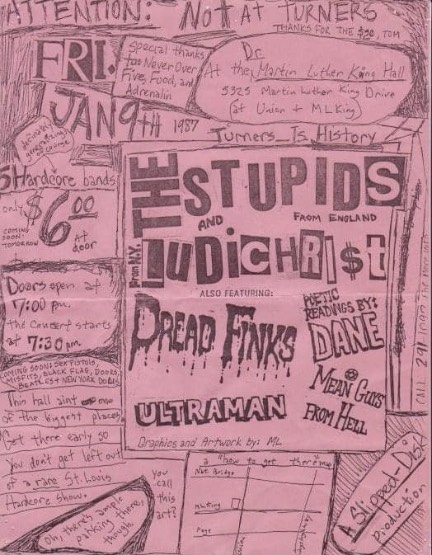 ATTENTION: Not At TURNERS
THANKS FOR THE $50, TOM
FRI.
JAN 9TH 1987
special thanks
too Never Over
Five, Food, and
Adrenalin
At the Dr. Martin Luther King Hall
5325 Martin Luther King Drive
(at Union + MLKing)
Turners Is History
5 Hardcore bands
only $6.00
COMING
SOON:
TOMORROW
AT
door
Doors open at
7:00 pm.
the concert starts
at 7:30 pm
COMING SOON: SEX PISTOLS,
MISFITS, BLACK FLAG, DOORS,
BEATLES + NEW YORK DOLLS
This hall aint one
of the biggest places,
Get there early so
You don't get left out
of a rare St. Louis
Hardcore show.
Oh, there's ample
parking there,
though.
You
call
this
art?
THE STUPIDS
FROM ENGLAND
AND
From N.Y. LUDICHRI$t
ALSO FEATURING:
DREAD FINKS
POETIC
READINGS BY:
DANE
MEAN GUYS
FROM HELL
ULTRAMAN
Graphics and Artwork by: ML
a how to get there map
A Slipped-Disk
production